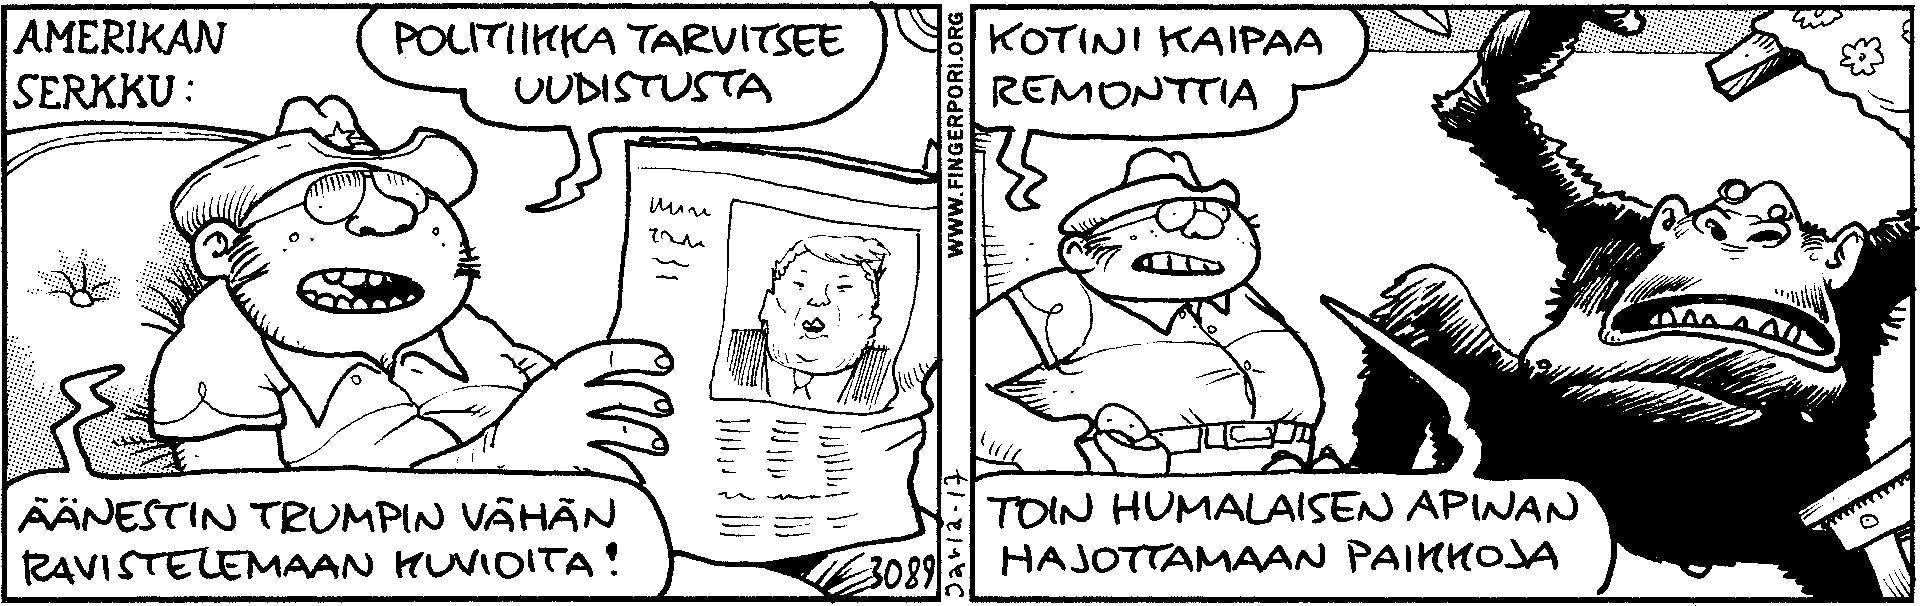 AMERIKAN
SERKKU:
POLITIIKKA TARVITSEE
UUDISTUSTA
ÄÄNESTIN TRUMPIN VÄHÄN
RAVISTELEMAAN KUVIOITA!
3089
WWW.FINGERPORI.ORG
Jarla-17
KOTINI KAIPAA
REMONTTIA
TOIN HUMALAISEN APINAN
HAJOTTAMAAN PAIKKOJA